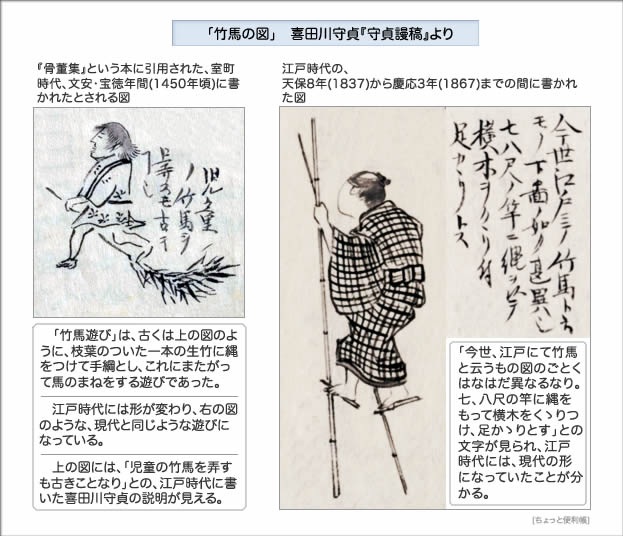 「竹馬の図」　喜田川守貞『守貞謾稿』より
『骨董集』という本に引用された、室町
時代、文安・宝徳年間(1450年頃)に書
かれたとされる図
児童
ノ竹馬ヲ
弄スモ古キ
「竹馬遊び」は、古くは上の図のよ
うに、枝葉のついた一本の生竹に縄
をつけて手綱とし、これにまたがっ
て馬のまねをする遊びであった。
江戸時代には形が変わり、右の図
のような、現代と同じような遊びに
なっている。
上の図には、「児童の竹馬を弄す
も古きことなり」との、江戸時代に書
いた喜田川守貞の説明が見える。
江戸時代の、
天保8年(1837)から慶応3年(1867)までの間に書かれ
た図
今世江戸ニテ竹馬ト云
モノ下図ノ如ク甚異ハし
七八尺ノ竿ニ縄ヲ以テ
横木ヲクヽリ付
足カヽリトス
「今世、江戸にて竹馬
と云うもの図のごとく
はなはだ異なるなり。
七、八尺の竿に縄を
もって横木をくゝりつ
け、足かゝりとす」との
文字が見られ、江戸
時代には、現代の形
になっていたことが分
かる。
[ちょっと便利帳]